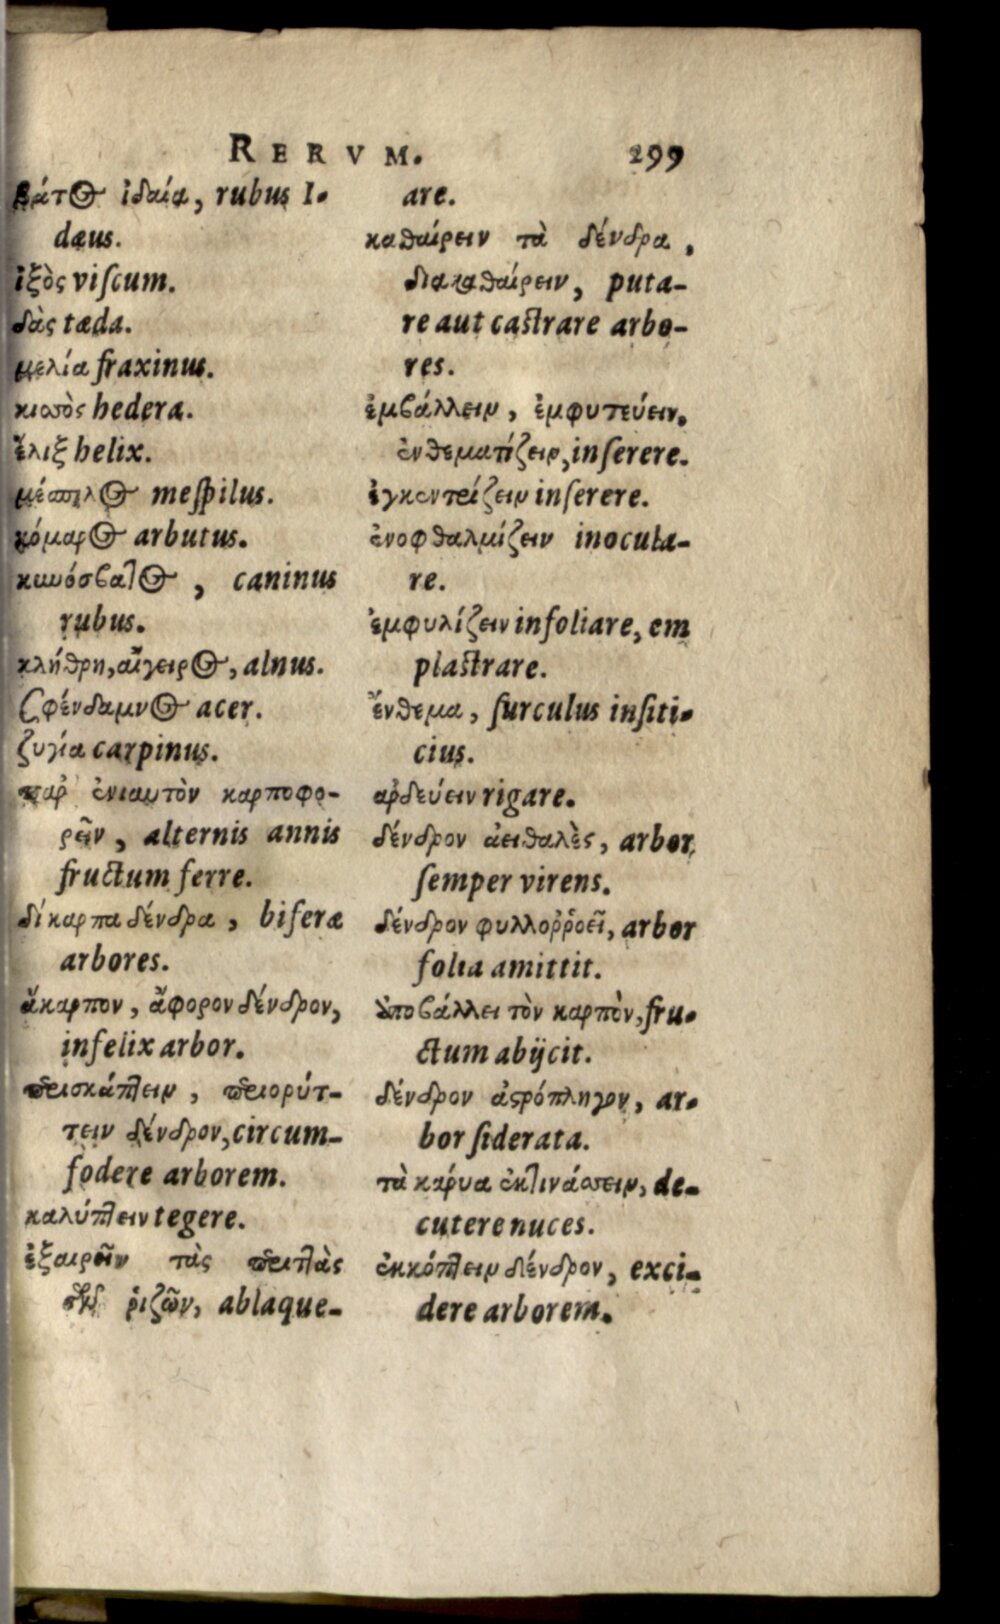 RERVM. 299
βάτος ἰδαία, rubus I-
dæus.
ἰξὸς viſcum.
δὰς tæda.
μελία fraxinus.
κισσὸς hedera.
ἕλιξ helix.
μέσπιλος meſpilus.
κόμαρος arbutus.
κυνόσβατος, caninus
rubus.
κλήθρη, αἴγειρος, alnus.
Σφένδαμνος acer.
ζυγία carpinus.
παρ ἐνιαυτὸν καρποφο-
ρεῖν, alternis annis
fructum ferre.
δίκαρπα δένδρα, biferæ
arbores.
ἄκαρπον, ἄφορον δένδρον,
infelix arbor.
περισκάπτειν, περιορύτ-
τειν δένδρον, circum-
fodere arborem.
καλύπτειν tegere.
ἐξαιρεῖν τὰς περιττὰς
τῶν ῥιζῶν, ablaque-
are.
καθαίρειν τὰ δένδρα,
διακαθαίρειν, puta-
re aut caſtrare arbo-
res.
ἐμβάλλειν, ἐμφυτεύειν,
ἐνθεματίζειν, inſerere.
ἐγκεντρίζειν inſerere.
ἐνοφθαλμίζειν inocula-
re.
ἐμφυλίζειν infoliare, em
plaſtrare.
ἔνθεμα, ſurculus inſiti-
cius.
αρδεύειν rigare.
δένδρον ἀειθαλὲς, arbor
ſemper virens.
δένδρον φυλλοῤῥοεῖ, arbor
folia amittit.
ὑποβάλλει τὸν καρπὸν, fru-
ctum abijcit.
δένδρον ἀστρόπληγον, ar-
bor ſiderata.
τὰ κάρυα ἐκτινάσσειν, de-
cutere nuces.
ἐκκόπτειν δένδρον, exci-
dere arborem.